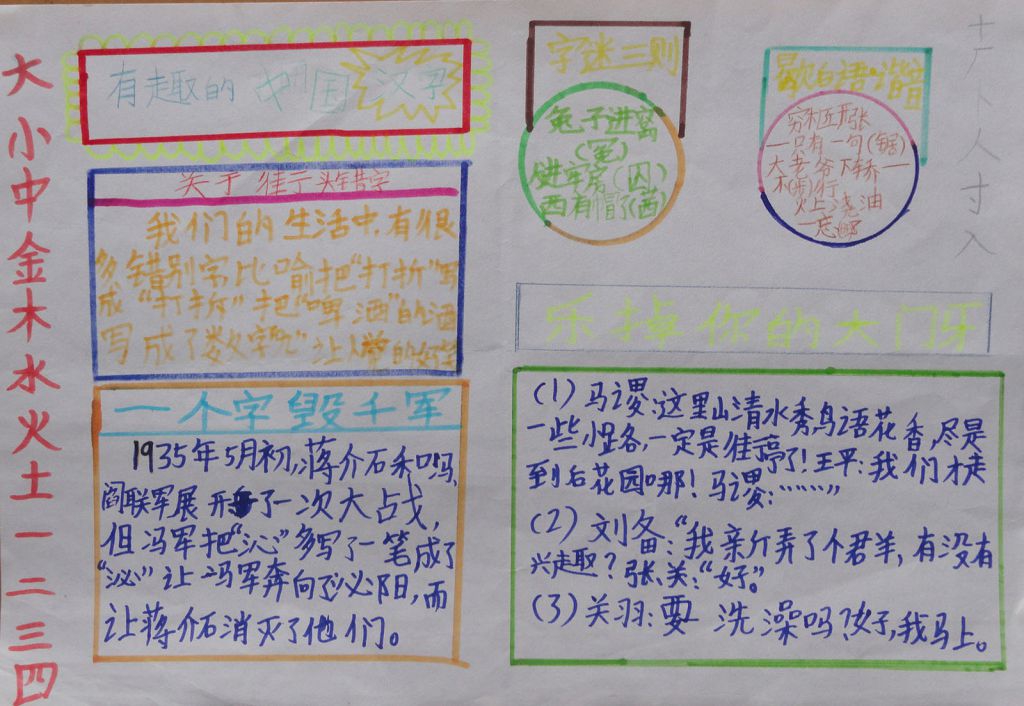 大
小
中
金
木
水
火
土
一
二
三
四
有趣的中国汉字
关于街头错字
我们的生活中,有很
多错别字比喻把“打折”写
成“打拆”把“啤酒”的酒
写成了数字“九”让人
一个字毁千军
1935年5月初,蒋介石和冯、
阎联军展开了一次大占戈,
但冯军把“沁”多写了一笔成了
“泌”让冯军奔向了泌阳,而
让蒋介石消灭了他们。
字迷三则
兔子进离
(冤)
进牢房(囚)
西有帽了(茜)
歇白语·谐音
一只有一句(锯)
大老爷下轿一
火上浇油
乐掉你的大门牙
(1)马谡:这里山清水秀,鸟语花香,尽是
一些小怪各,一定是佳亭了!王平:我们才走
到后花园哪!马谡:“……”
(2)刘备:“我亲斤弄了个君羊,有没有
兴走取?张、关:“好”。
(3)关羽:要洗澡吗?好,我马上。
十
厂
卜
人
寸
入